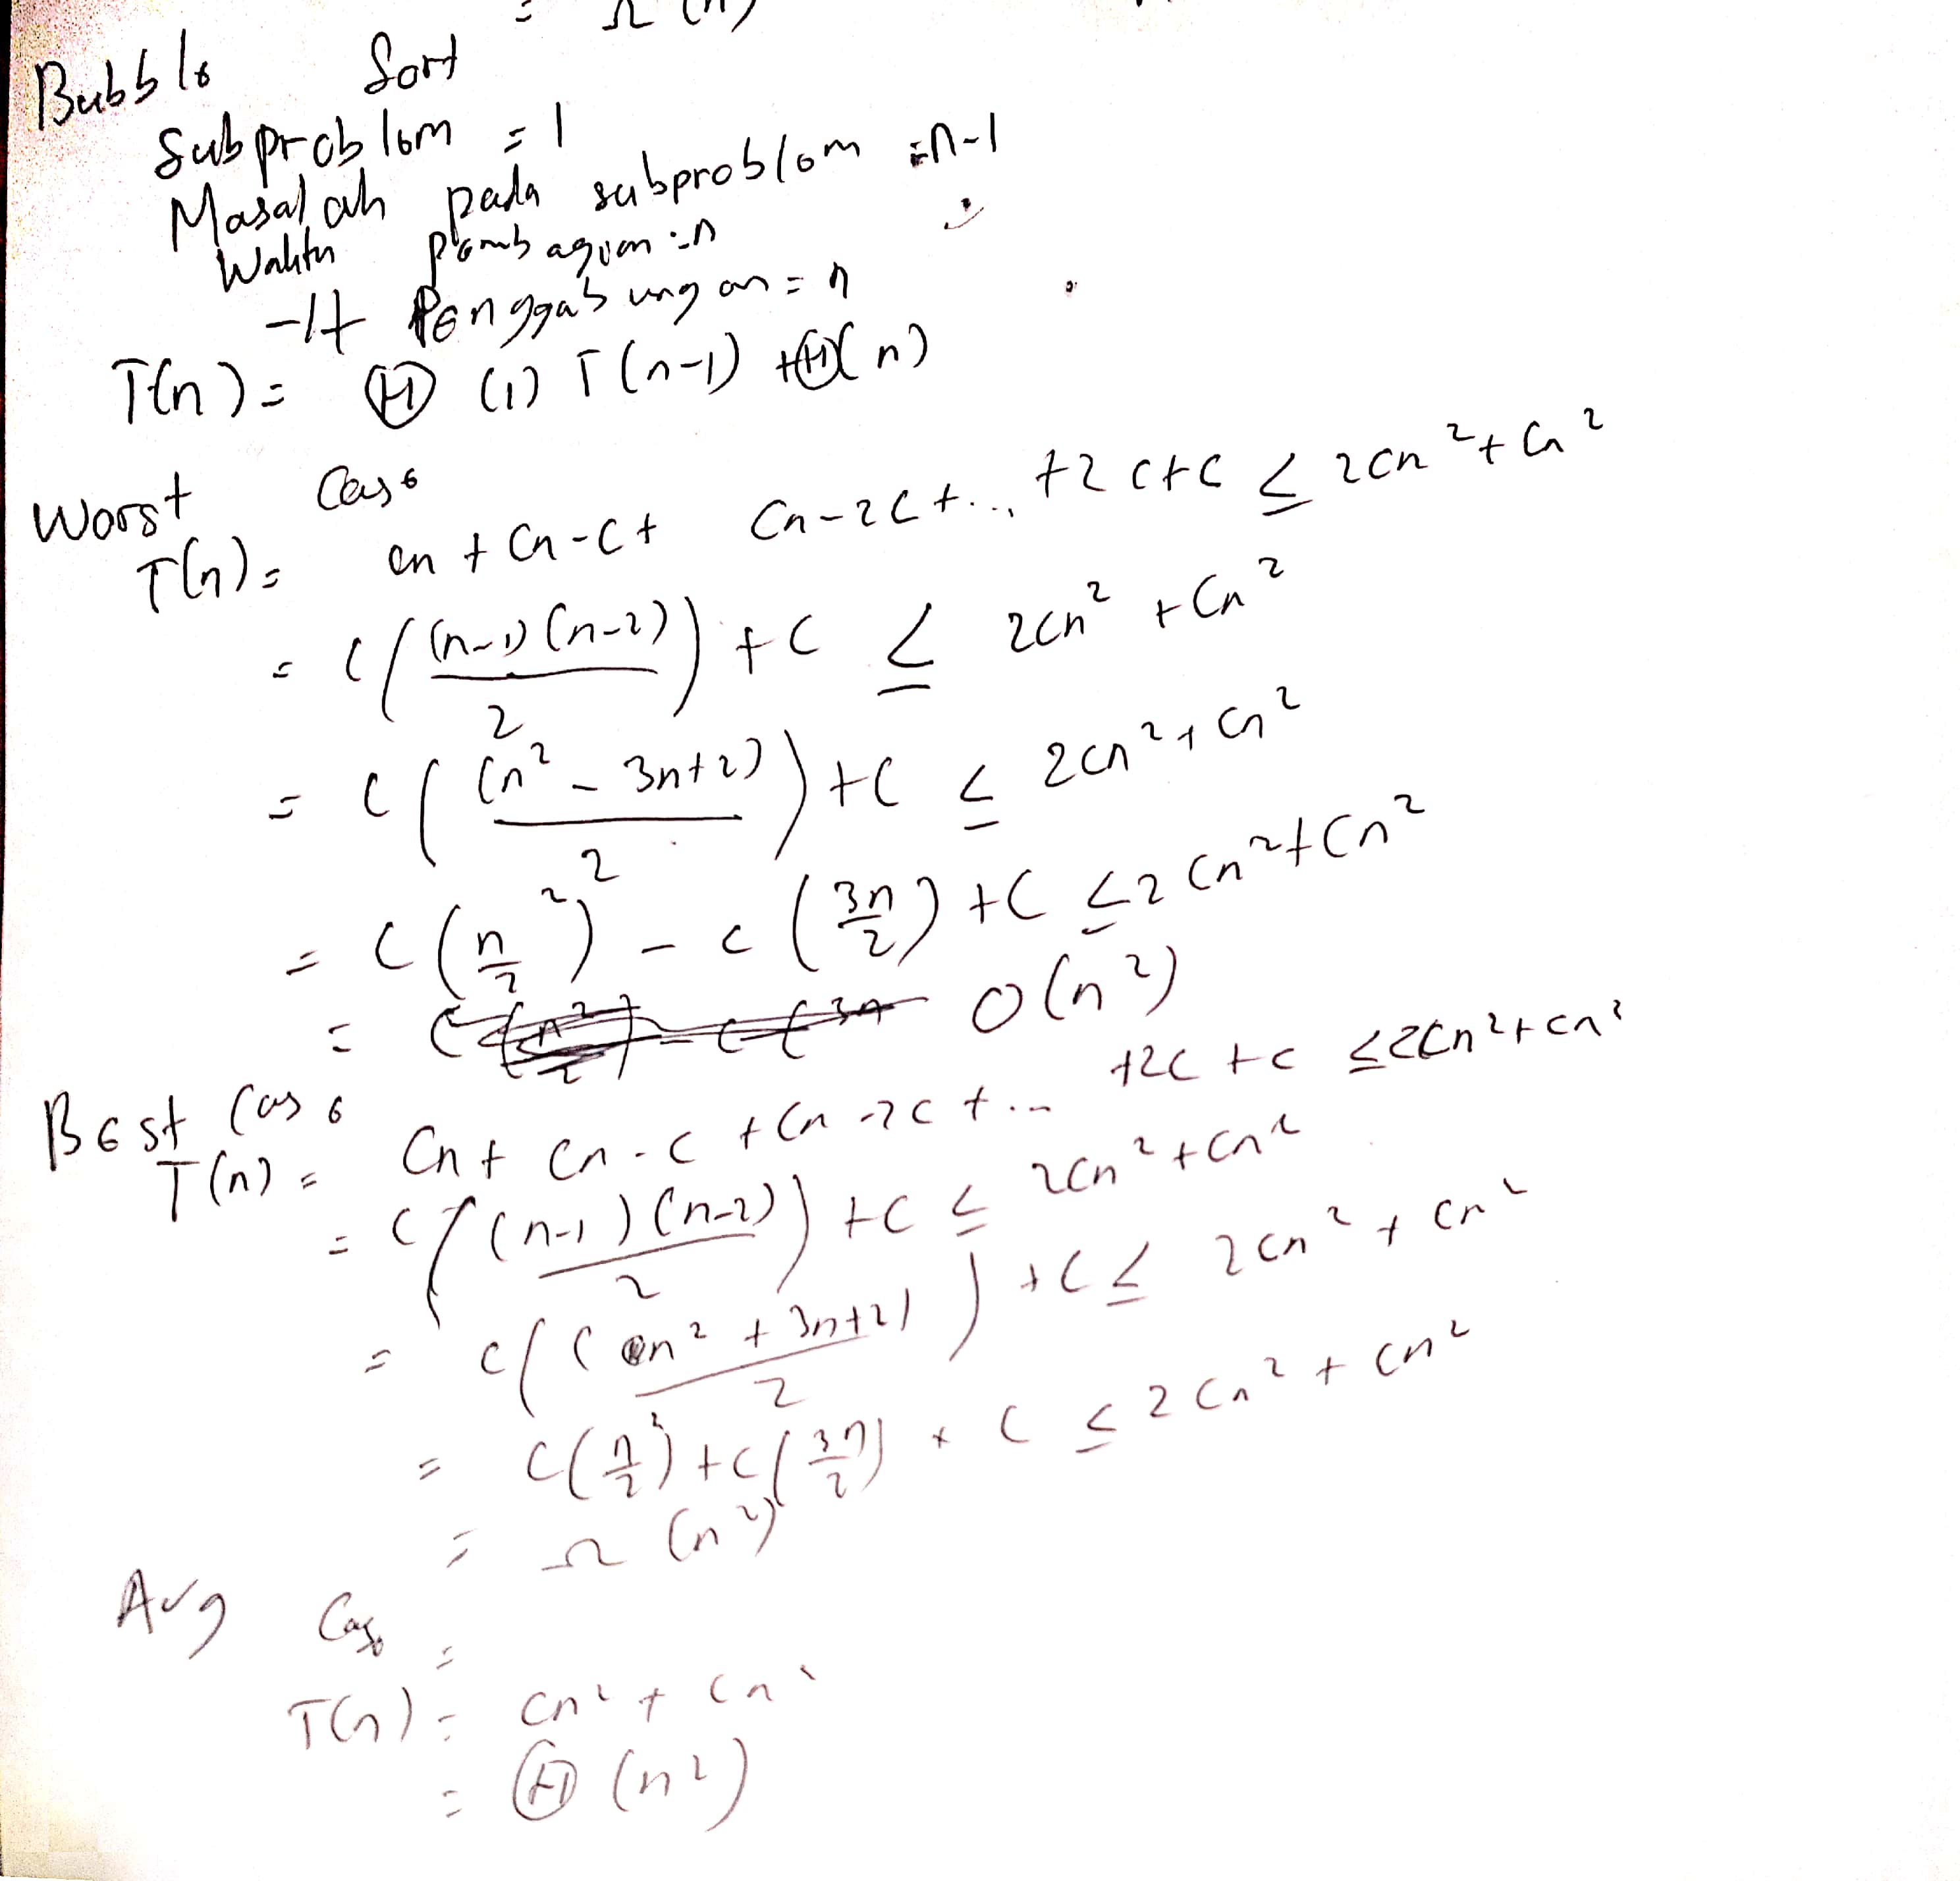 = Ω (n)
Bubble Sort
Subproblem = 1
Masalah pada subproblem = n-1
Waktu pembagian = n
-11- Penggabungan = n
T(n) = Θ (1) T(n-1) + Θ(n)
Worst Case
T(n) = cn + cn-c + cn-2c + ... +2c+c ≤ 2cn² + cn²
= c((n-1)(n-2)/2) + c ≤ 2cn² + cn²
= c((n² - 3n+2)/2) + c ≤ 2cn² + cn²
= c(n²/2) - c(3n/2) + c ≤ 2cn² + cn²
= O(n²)
Best Case
T(n) = cn + cn-c + cn-2c + ... +2c+c ≤ 2cn² + cn²
= c((n-1)(n-2)/2) + c ≤ 2cn² + cn²
= c((n² + 3n+2)/2) + c ≤ 2cn² + cn²
= c(n²/2) + c(3n/2) + c ≤ 2cn² + cn²
= Ω (n²)
Avg Case =
T(n) = cn² + cn²
= Θ (n²)